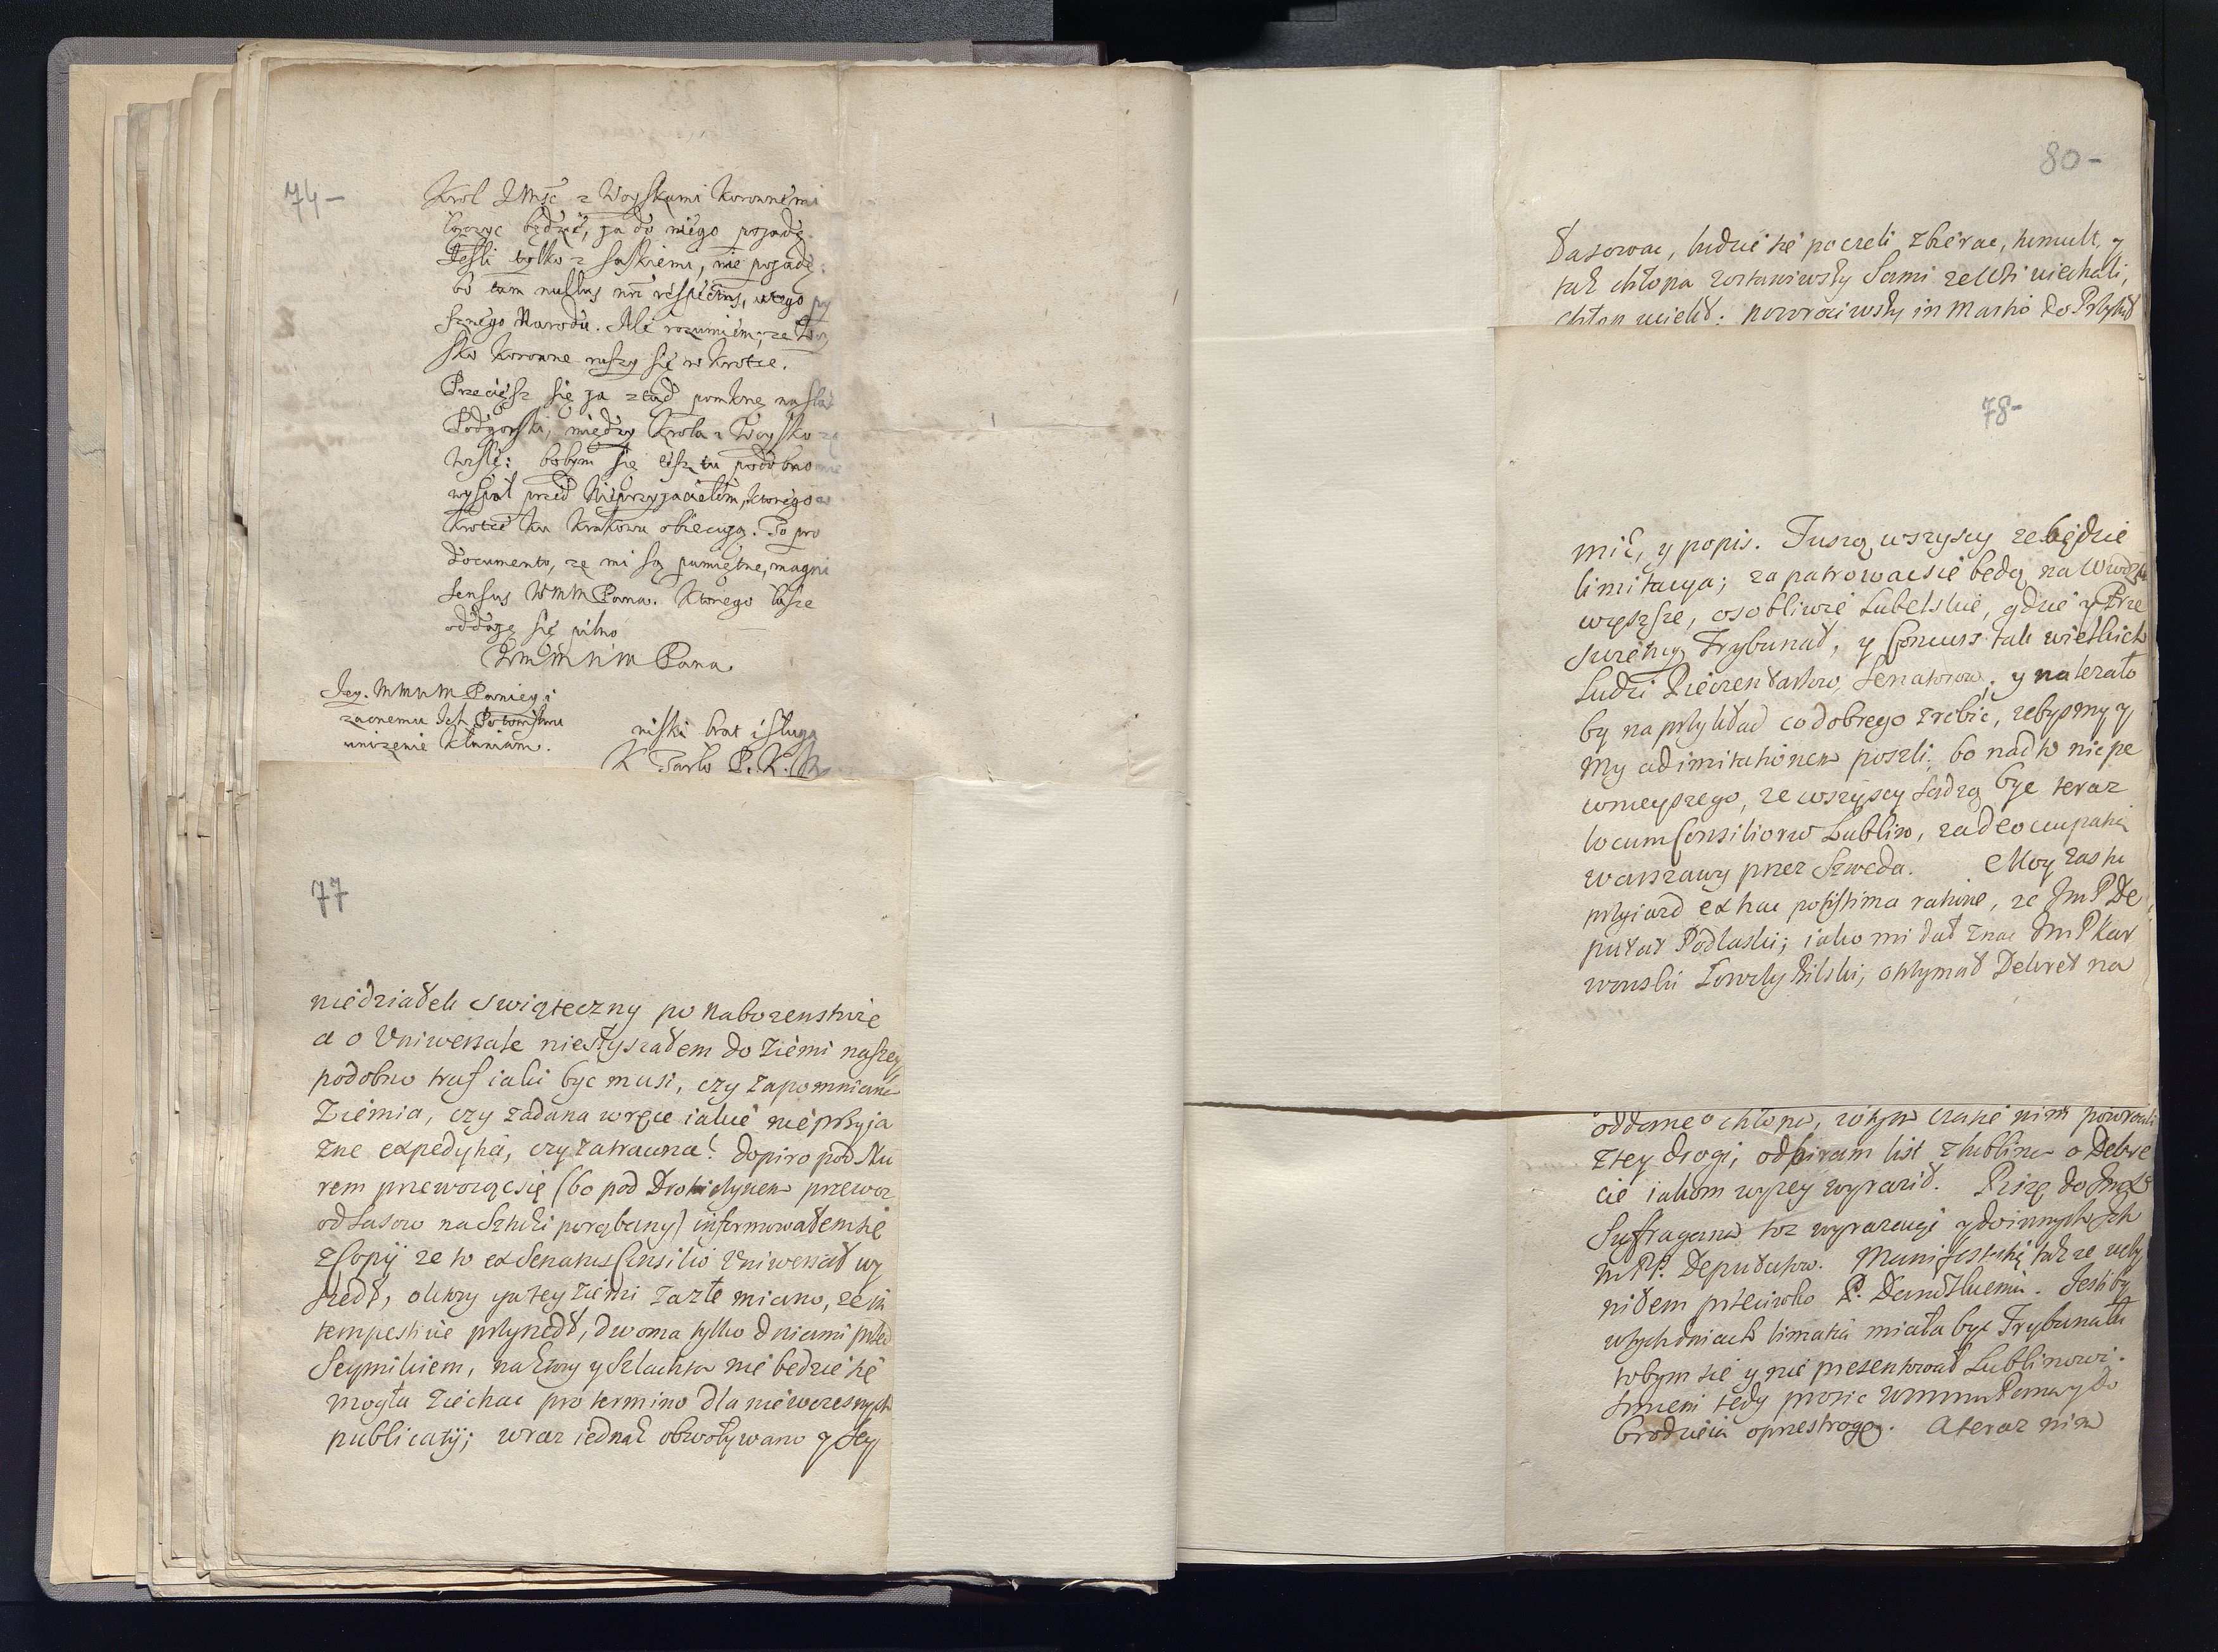 74-
Krol JMść z Woyskami Koronnemi
będzie, ja do niego pojadę.
Jeśli tylko z saskiemi, nie pojadę:
bo tam nullus respectus,
sznego Narodu. Ale rozumiem, ze Woy
sko Koronne ruszy się w krotce.
Przecięsz się ja ztąd pomknę na szlak
Podgorski, między Krola i Woysko
bobym się tu podobno
wyspał przed Nieprzyjacielem, ktorego w
krotce ku Krakowu obiecują. To pro
documento, ze mi są pamiętne, magni
sensus WMM Pana. Ktorego łasce
oddaję się pilno
Pana
Jey. MMWM Paniey i
zacnemu Ich Potomstwu
unizenie kłaniam.
niski brat i sługa
K Tarło
77
niedziałek swiąteczny po nabozenstwie
a o Uniwersale niesłyszałem do Ziemi naszey
podobno traf iaki byc musi, czy zapomniana
Ziemia, czy zadana w ręce iakie nieprzyja
zne expedytia, czy zatracona? dopiro pod Nu
rem przewozącsię (bo pod Drohiczynem przewoz
od Sasow na Sztuki porąbany) informowałemsię
z Copij ze to ex Senatus Consilio Uniwersał wy
szedł, o ktory ya tey Ziemi zazłe miano, ze in
tempestive przyszedł, dwoma tylko dniami przed
Seymikiem, na ktory y Szlachta nie będzie się
mogła ziechac pro termino dla niewczesnych
publicatij; wraz iednak obwoływano y Sey
80-
ludzie się poczeli zbierac, tumult, y
tak chłopa zostawiwszy sami ze Wsi uiechali,
chłop uciekł: powrociwszy in Martio do
78-
mik, y popis. Tuszą wszyscy ze będzie
limitacya; zapatrowacsie będą na Wwodz
twa
większe, osobliwie Lubelskie, gdzie y Prze
swietny Trybunał, y Concurs tak wielkich
Ludzi Rezydentow, Senatorow; y nalezało
by na przykład co dobrego zrobic, zebysmy y
my ad imitationem poszli; bo nad to niepe
wnieyszego, ze wszyscy sądzą byc teraz
locum Consiliorum Lublin, za deoccupatią
Warszawy przez Szweda. Moy zas tu
przyiazd ex hac potissima ratione, ze JmP De
putat Podlaski; iako mi dał znac JmP Kar
wowski Łowczy Bilski, otrzymał Dekret na
oddanie chłopa, w tym czasie nim powrocił
z tey drogi, odbieram list z Lublina o Dekre
cie iakom wyzey wyraził. Piszę do
Suffragana toz wyrazaiąc y do innych Ich
MPP. Deputatow. Manifestatię takze uczy
niłem przeciwko P. Jesliby
w tych dniach limatia miała byc Trybunału
tobym się y nie presentował Lublinowi.
tedy prosic Pana y Do
brodzieia o przestrogę. A teraz nim